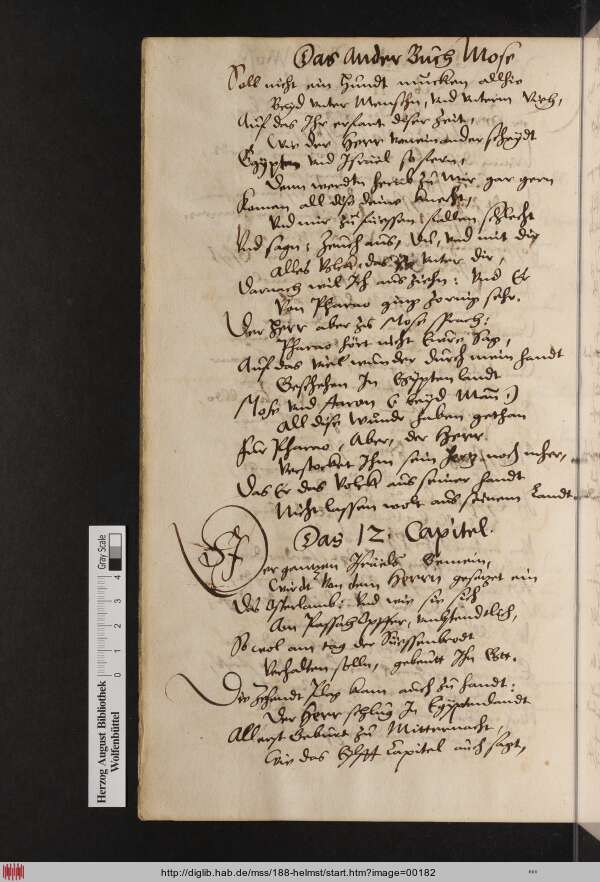 Das Ander Buch Mose
Soll nicht ein Hundt mucken allhie
Beyd unter Menschen, und unterm Vieh,
Auf das Ihr erfart diser Zeit,
Wie der Herr voneinander scheydt
Egypten und Israel so fern,
Denn werden herab zu Mir gar gern
Komen all diß deine knecht,
Und mir zu fuessen fallen schlecht
Und sagn: Zeuch aus, du, und mit dir
Alles Volck, das unter dir,
Darnach wil Ich ausziehn: Und Er
Von Pharao ging zornig sehr.
Der Herr aber zu Mose sprach:
Pharao hört nicht Eure Sag,
Auf das viel wunder durch mein handt
Geschehen In Egyptenlandt
Mose und Aaron (beyd Man)
All dise wunder haben gethan
Fur Pharao, Aber, der Herr
Verstocket Ihm sein hertz noch mher,
Das Er das Volck aus seiner handt
Nicht lassen wolt aus seinem Landt.
Das 12. Capitel.
Der gantzen Israels Gemein,
Wirdt von dem Herrn gesatzet ein
Das Osterlamb: Und wie sie sich
Am Passah Opffer, umbstendtlich,
So wol am tag der Suessenbrodt
Verhalten sollen, gebeutt Ihn Gott.
Die Zehendt Plag kam auch zu handt:
Der Herr schlug In Egyptenlandt
All erst Geburt zu Mitternacht,
Wie das Capitel auch sagt,
Herzog August Bibliothek
Wolfenbüttel
0 1 2 3 4
Gray Scale
http://diglib.hab.de/mss/188-helmst/start.htm?image=00182